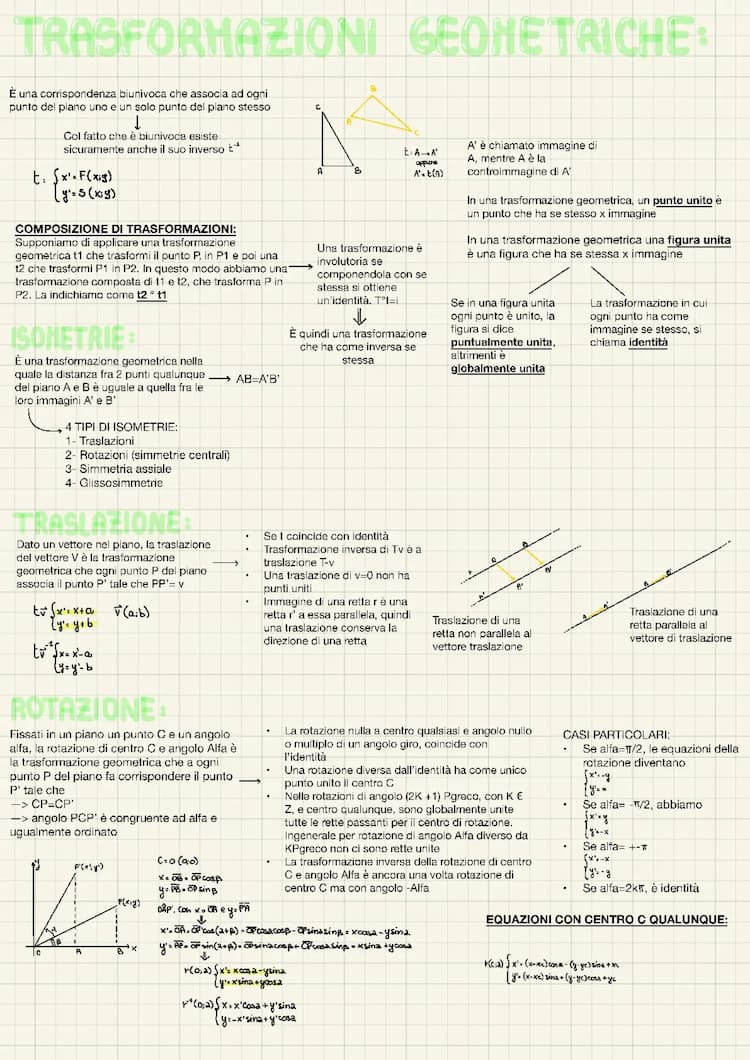 TRASFORMAZIONI GEOMETRICHE:
È una corrispondenza biunivoca che associa ad ogni
punto del piano uno e un solo punto del piano stesso
Col fatto che è biunivoca esiste
sicuramente anche il suo inverso t⁻¹
t: {x'=F(x;y)
{y'=S(x;y)
C
A
B
A
B
C
t: A→A'
oppure
A'=t(A)
A' è chiamato immagine di
A, mentre A è la
controimmagine di A'
In una trasformazione geometrica, un punto unito è
un punto che ha se stesso x immagine
In una trasformazione geometrica una figura unita
è una figura che ha se stessa x immagine
Se in una figura unita
ogni punto è unito, la
figura si dice
puntualmente unita,
altrimenti è
globalmente unita
La trasformazione in cui
ogni punto ha come
immagine se stesso, si
chiama identità
COMPOSIZIONE DI TRASFORMAZIONI:
Supponiamo di applicare una trasformazione
geometrica t1 che trasformi il punto P, in P1 e poi una
t2 che trasformi P1 in P2. In questo modo abbiamo una
trasformazione composta di t1 e t2, che trasforma P in
P2. La indichiamo come t2 ° t1
Una trasformazione è
involutoria se
componendola con se
stessa si ottiene
un'identità. T°t=i
È quindi una trasformazione
che ha come inversa se
stessa
ISOMETRIE:
È una trasformazione geometrica nella
quale la distanza fra 2 punti qualunque
del piano A e B è uguale a quella fra le
loro immagini A' e B'
AB=A'B'
4 TIPI DI ISOMETRIE:
1- Traslazioni
2- Rotazioni (simmetrie centrali)
3- Simmetria assiale
4- Glissosimmetrie
TRASLAZIONE:
Dato un vettore nel piano, la traslazione
del vettore V è la trasformazione
geometrica che ogni punto P del piano
associa il punto P' tale che PP'= v
tv {x'=x+a
{y'=y+b
v(a;b)
tv⁻¹ {x=x'-a
{y=y'-b
• Se t coincide con identità
• Trasformazione inversa di Tv è a
traslazione T-v
• Una traslazione di v=0 non ha
punti uniti
• Immagine di una retta r è una
retta r' a essa parallela, quindi
una traslazione conserva la
direzione di una retta
r
A
B
r'
A'
B'
Traslazione di una
retta non parallela al
vettore traslazione
A
A'
B
B'
Traslazione di una
retta parallela al
vettore di traslazione
ROTAZIONE:
Fissati in un piano un punto C e un angolo
alfa, la rotazione di centro C e angolo Alfa è
la trasformazione geometrica che a ogni
punto P del piano fa corrispondere il punto
P' tale che
—> CP=CP'
—> angolo PCP' è congruente ad alfa e
ugualmente ordinato
• La rotazione nulla a centro qualsiasi e angolo nullo
o multiplo di un angolo giro, coincide con
l'identità
• Una rotazione diversa dall'identità ha come unico
punto unito il centro C
• Nelle rotazioni di angolo (2K +1) Pgreco, con K €
Z, e centro qualunque, sono globalmente unite
tutte le rette passanti per il centro di rotazione.
Ingenerale per rotazione di angolo Alfa diverso da
KPgreco non ci sono rette unite
• La trasformazione inversa della rotazione di centro
C e angolo Alfa è ancora una volta rotazione di
centro C ma con angolo -Alfa
CASI PARTICOLARI:
• Se alfa=π/2, le equazioni della
rotazione diventano
{x'=-y
{y'=x
• Se alfa= -π/2, abbiamo
{x'=y
{y'=-x
• Se alfa= +-π
{x'=-x
{y'=-y
• Se alfa=2kπ, è identità
EQUAZIONI CON CENTRO C QUALUNQUE:
{x'=(x-xc)cosα-(y-yc)sinα+xc
{y'=(x-xc)sinα+(y-yc)cosα+yc
y
P'(x';y')
P(x;y)
O
A
B
x
C=O(0;0)
x=OB=OPcosβ
y=PB=OPsinβ
x'=OA=OPcos(α+β)=OPcosαcosβ-OPsinαsinβ=xcosα-ysinα
y'=P'A=OPsin(α+β)=OPsinαcosβ+OPcosαsinβ=xsinα+ycosα
r(O;α){x'=xcosα-ysinα
{y'=xsinα+ycosα
r⁻¹(O;α){x=x'cosα+y'sinα
{y=-x'sinα+y'cosα